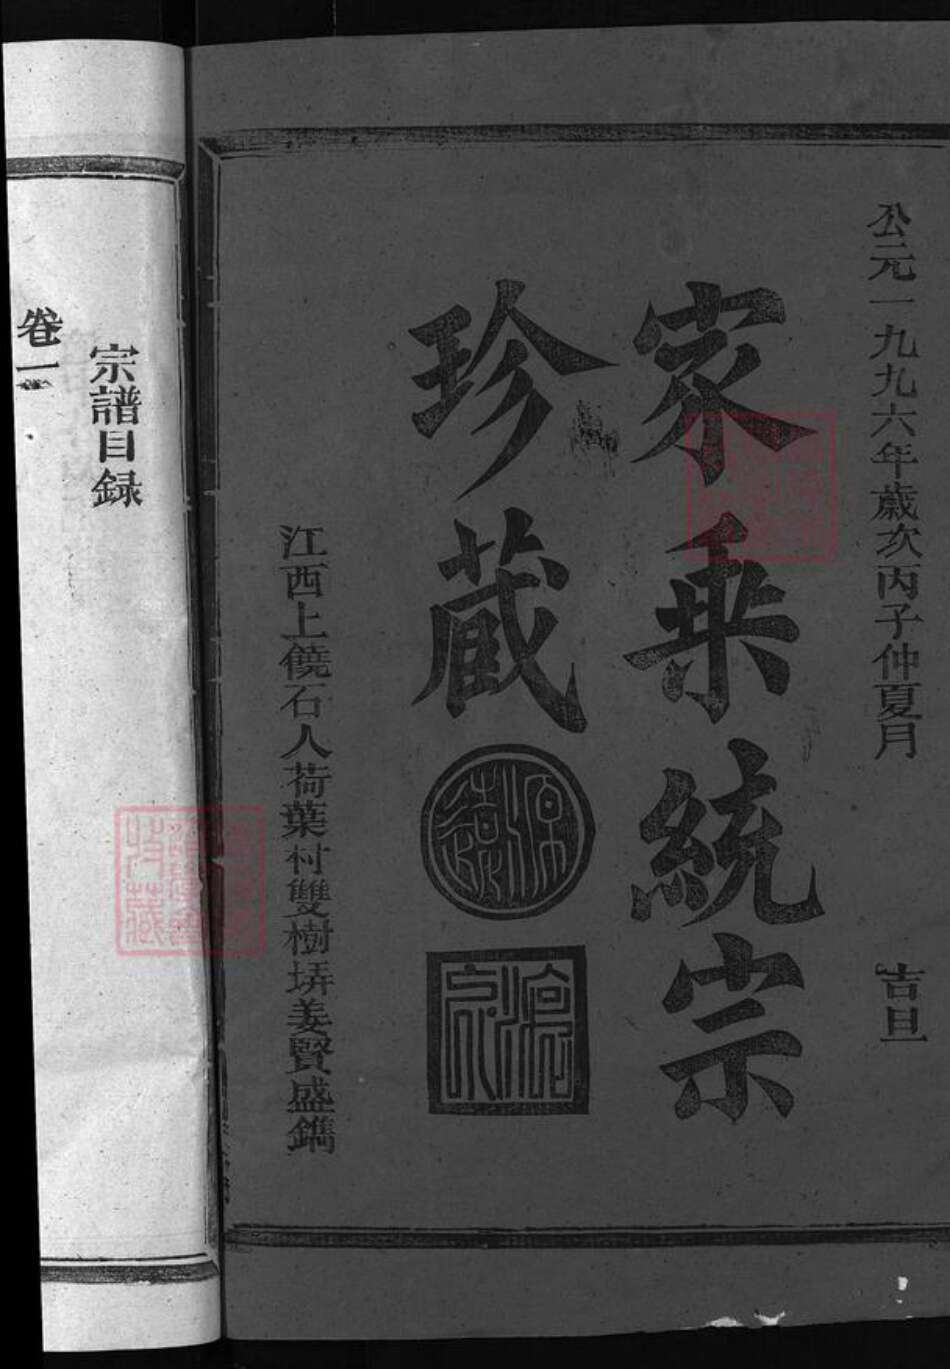 公元一九九六年歲次丙子仲夏月 吉旦
家乘統宗
珍藏
江西上饒石人荷葉村雙樹垪姜賢盛鐫
宗譜目録
卷一